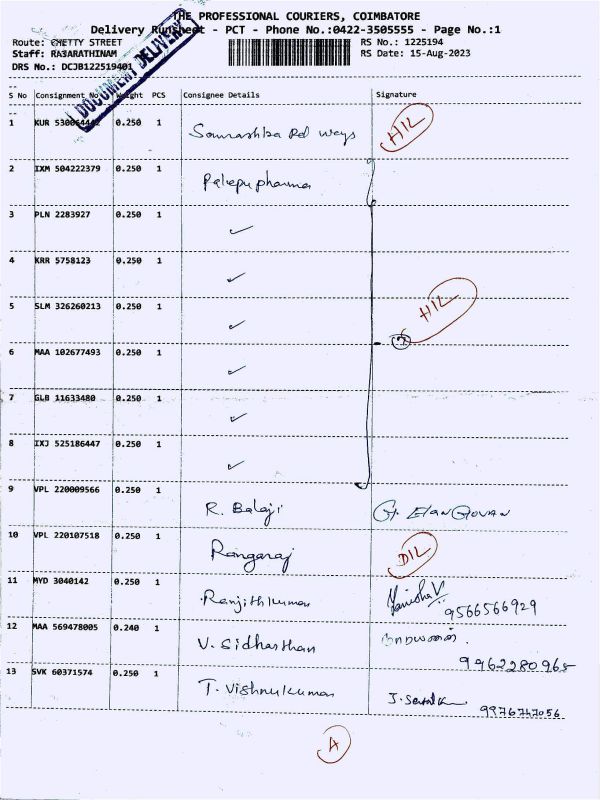 THE PROFESSIONAL COURIERS, COIMBATORE
Delivery Runsheet - PCT - Phone No.:0422-3505555 - Page No.:1
Route: CHETTY STREET
Staff: RAJARATHINAM
DRS No.: DCJB122519401
RS No.: 1225194
RS Date: 15-Aug-2023
DOCUMENT DELIVERY
S No Consignment No Weight PCS Consignee Details Signature
1 KUR 0.250 1 Ways HIL
2 IXM 504222379 0.250 1 Palepu pharma
3 PLN 2283927 0.250 1 ✓
4 KRR 5758123 0.250 1 ✓
5 SLM 326260213 0.250 1 ✓ HIL
6 MAA 102677493 0.250 1 ✓ 7
7 GLB 11633480 0.250 1 ✓
8 IXJ 525186447 0.250 1 ✓
9 VPL 220009566 0.250 1 R. Balaji G. ElanGovan
10 VPL 220107518 0.250 1 Rangaraj DIL
11 MYD 3040142 0.250 1 Ranjithkumar 9566566929
12 MAA 569478005 0.240 1 V. Sidharthan 9962280968
13 SVK 60371574 0.250 1 T. Vishnukumar 9976747056
A